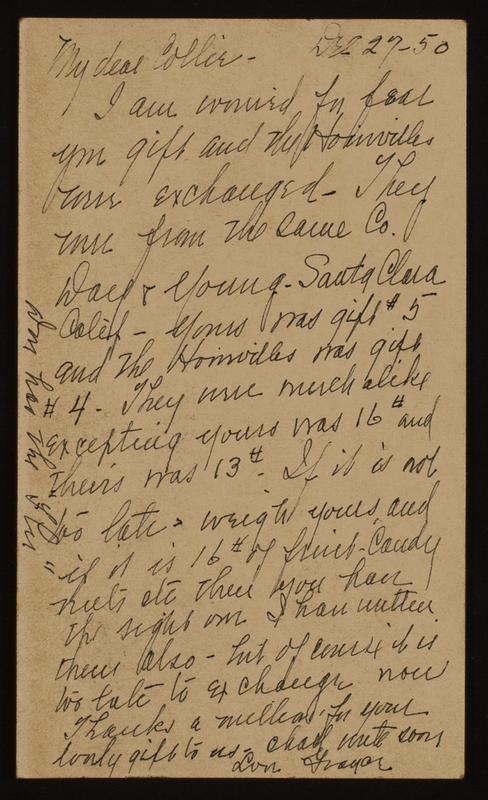 Dec 27-50
My dear Collie-
I am worried for fear
your gift and the Hoinvilles
were exchanged- They
were from the same Co.
Day & Young- Santa Clara
Calif- Yours was gift #5
and the Hoinvilles was gift
#4- They were much alike
excepting yours was 16# and
theirs was 13#. If it is not
too late- weigh yours and
if it is 16# of fruit-Candy
nuts etc then you have
the right one I have written
them also- but of course it is
too late to exchange now
Thanks a million for your
lovely gift to us- Chas will write soon
Love Grayce
Don has the "flu"